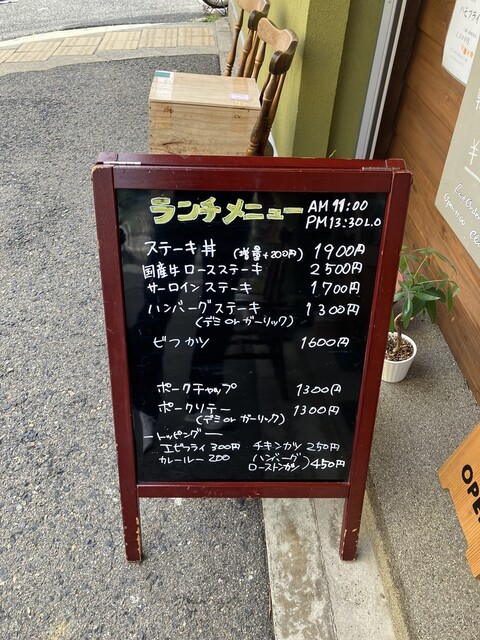 ランチメニュー AM 11:00
PM13:30L.O
ステーキ丼 (増量+200円) 1900円
国産牛ロースステーキ 2500円
サーロインステーキ 1700円
ハンバーグステーキ 1300円
(デミ or ガーリック)
ビフカツ 1600円
ポークチャップ 1300円
ポークソテー 1300円
(デミ or ガーリック)
ートッピングー
エビフライ 300円 チキンカツ 250円
カレールー 200 ハンバーグ
ローストンカツ)450円
OPE